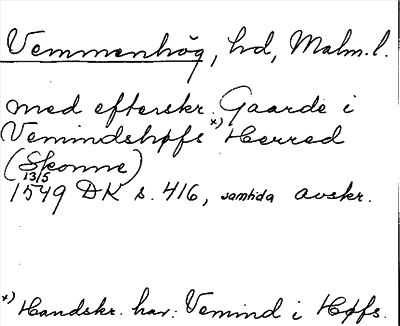 Vemmenhög, hd, Malm. l.
med efterskr. Gaarde i
Vemindshøfs x) Herred
(Skonne)
13/5
1549 DK s. 416, samtida avskr.
x) Handskr. har: Vemind i Høfs.